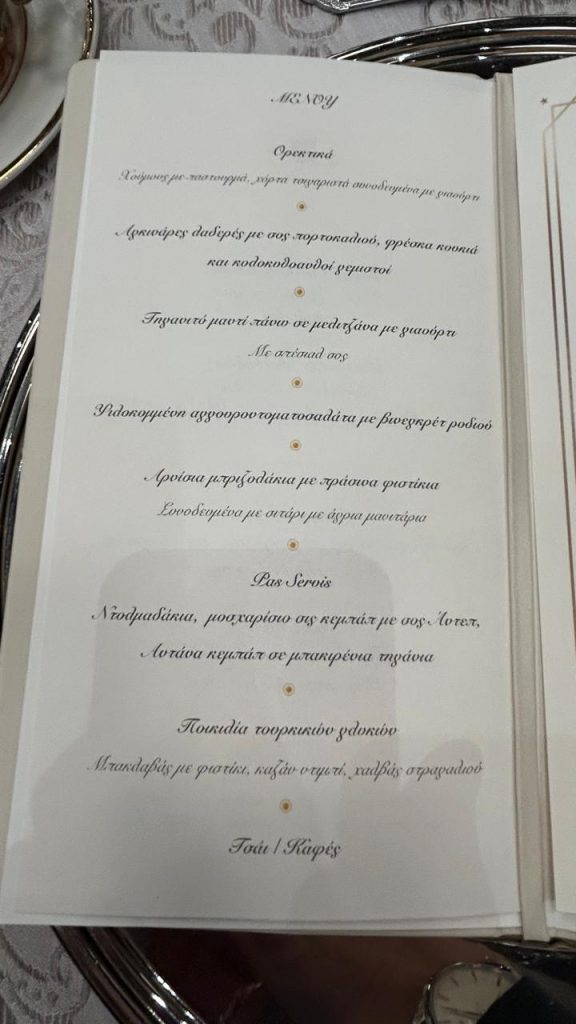 ΜΕΝΟΥ
Ορεκτικά
Χούμους με παστουρμά, χόρτα τσιγαριστά συνοδευμένα με γιαούρτι
Αγκινάρες λαδερές με σος πορτοκαλιού, φρέσκα κουκιά
και κολοκυθοανθοί γεμιστοί
Τηγανιτό μαντί πάνω σε μελιτζάνα με γιαούρτι
Με σπέσιαλ σος
Ψιλοκομμένη αγγουροντοματοσαλάτα με βινεγκρέτ ροδιού
Αρνίσια μπριζολάκια με πράσινα φιστίκια
Συνοδευμένα με σιτάρι με άγρια μανιτάρια
Pas Servis
Ντολμαδάκια, μοσχαρίσιο σις κεμπάπ με σος Άντεπ,
Αντάνα κεμπάπ σε μπακιρένια τηγάνια
Ποικιλία τουρκικών γλυκών
Μπακλαβάς με φιστίκι, καζάν ντιμπί, χαλβάς στραγαλιού
Τσάι / Καφές